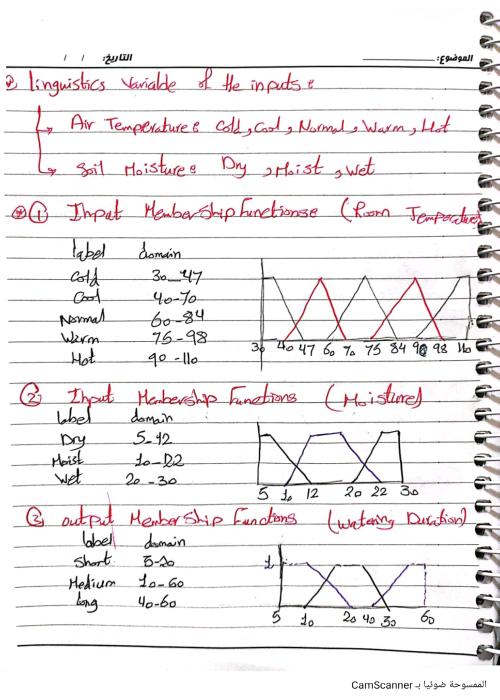 التاريخ: / / الموضوع:
linguistics variable of the inputs:
Air Temperature: Cold, Cool, Normal, Warm, Hot
Soil Moisture: Dry, Moist, Wet
① Input Membership Functions: (Room Temperature)
label domain
Cold 30_47
Cool 40-70
Normal 60-84
Warm 75-98
Hot 90-110
30 40 47 60 70 75 84 90 98 110
② Input Membership Functions (Moisture)
label domain
Dry 5-12
Moist 10-22
Wet 20-30
5 10 12 20 22 30
③ output Membership Functions (Watering Duration)
label domain
Short 5-20
Medium 10-60
long 40-60
1
5 10 20 40 30 60
الممسوحة ضوئيا بـ CamScanner